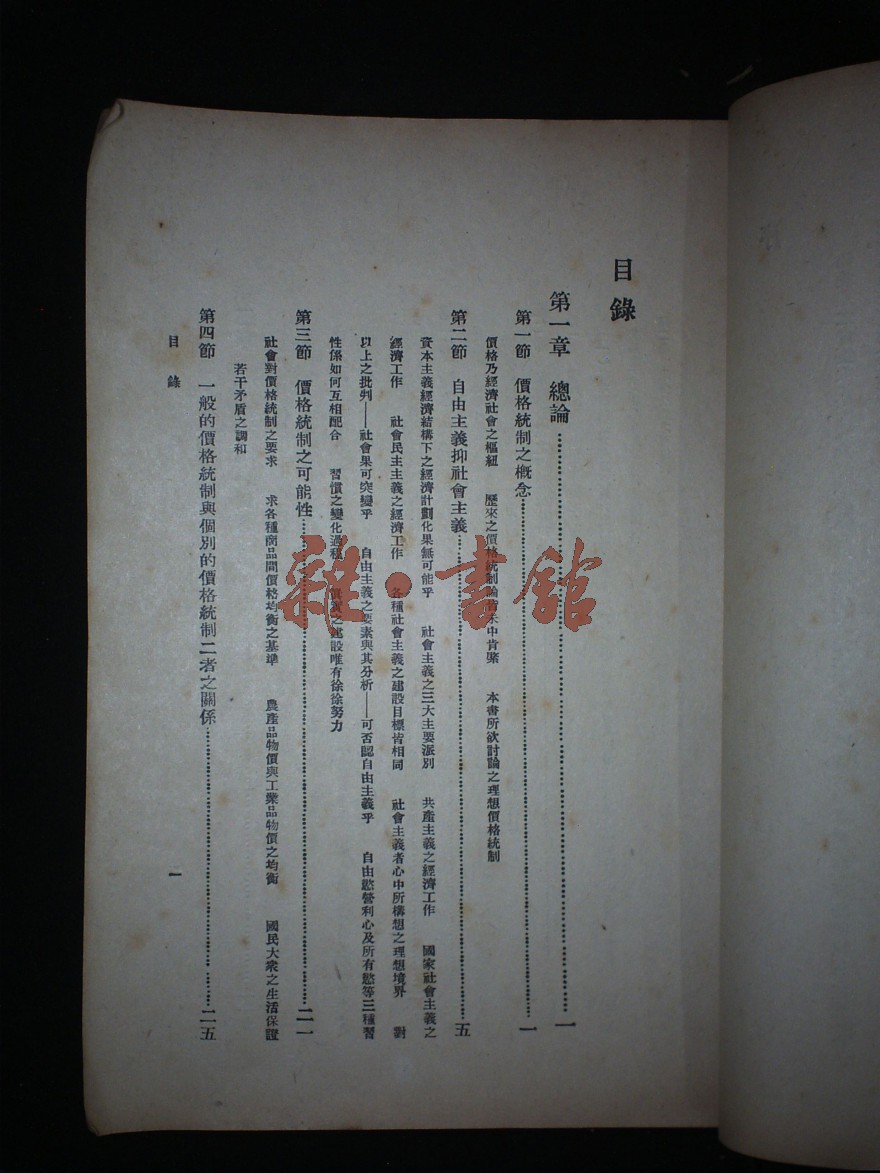 目錄
第一章 總論……一
第一節 價格統制之概念……一
價格乃經濟社會之樞紐 歷來之價格統制論皆未中肯棨 本書所欲討論之理想價格統制
第二節 自由主義抑社會主義……五
資本主義經濟結構下之經濟計劃化果無可能乎 社會主義之三大主要派別 共產主義之經濟工作 國家社會主義之
經濟工作 社會民主主義之經濟工作 各種社會主義之建設目標皆相同 社會主義者心中所構想之理想境界 對
以上之批判——社會果可突變乎 自由主義之要素與其分析——可否認自由主義乎 自由慾營利心及所有慾等三種習
性係如何互相配合 習慣之變化過程 之建設唯有徐徐努力
第三節 價格統制之可能性……二一
社會對價格統制之要求 求各種商品間價格均衡之基準 農產品物價與工業品物價之均衡 國民大衆之生活保證
若干矛盾之調和
第四節 一般的價格統制與個別的價格統制二者之關係……二五
目錄 一
雜·書館